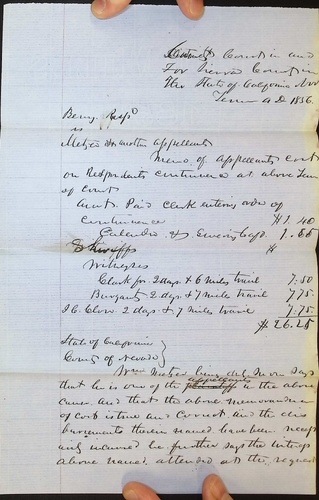 County Court in and
For Nevada County in
The State of California Nov
Term A.D. 1856.
Berry Respd
vs
another Appellants
Memo of Appellants Cost
on Respondents continuence at above Term
of Court
Amt. Paid Clerk entering order of
continuence $1.40
Calendar &
Sheriffs $
Witnesses
Clark for 2 days & 6 miles travel 7.50
2 days & 7 miles travel 7.75
2 days & 7 miles travel 7.75
$ 26.25
State of California }
County of Nevada }
Wm being duly sworn says
that he is one of the appellants in the above
cause and that the above memorandum
of cost is true and correct and the dis
bursements therein named have been necess
arily incurred he further says the witnesses
above named attended at the request